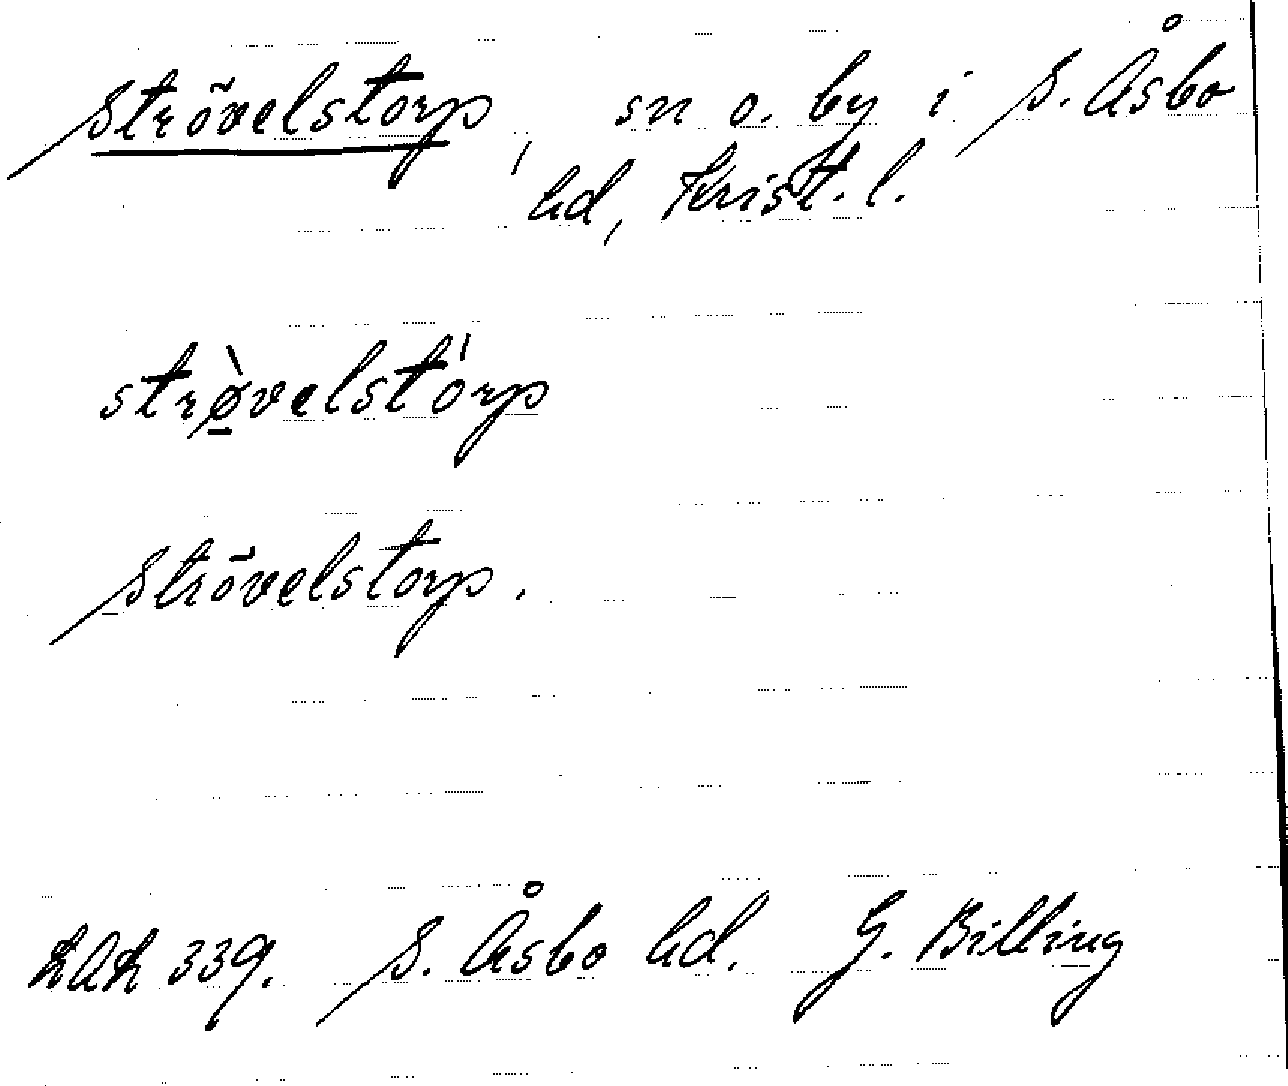 Strövelstorp, sn o. by i S. Åsbo
hd, Krist. l.
strø̠̀velstórp
Strövelstorp.
LAL 339. S. Åsbo hd. G. Billing